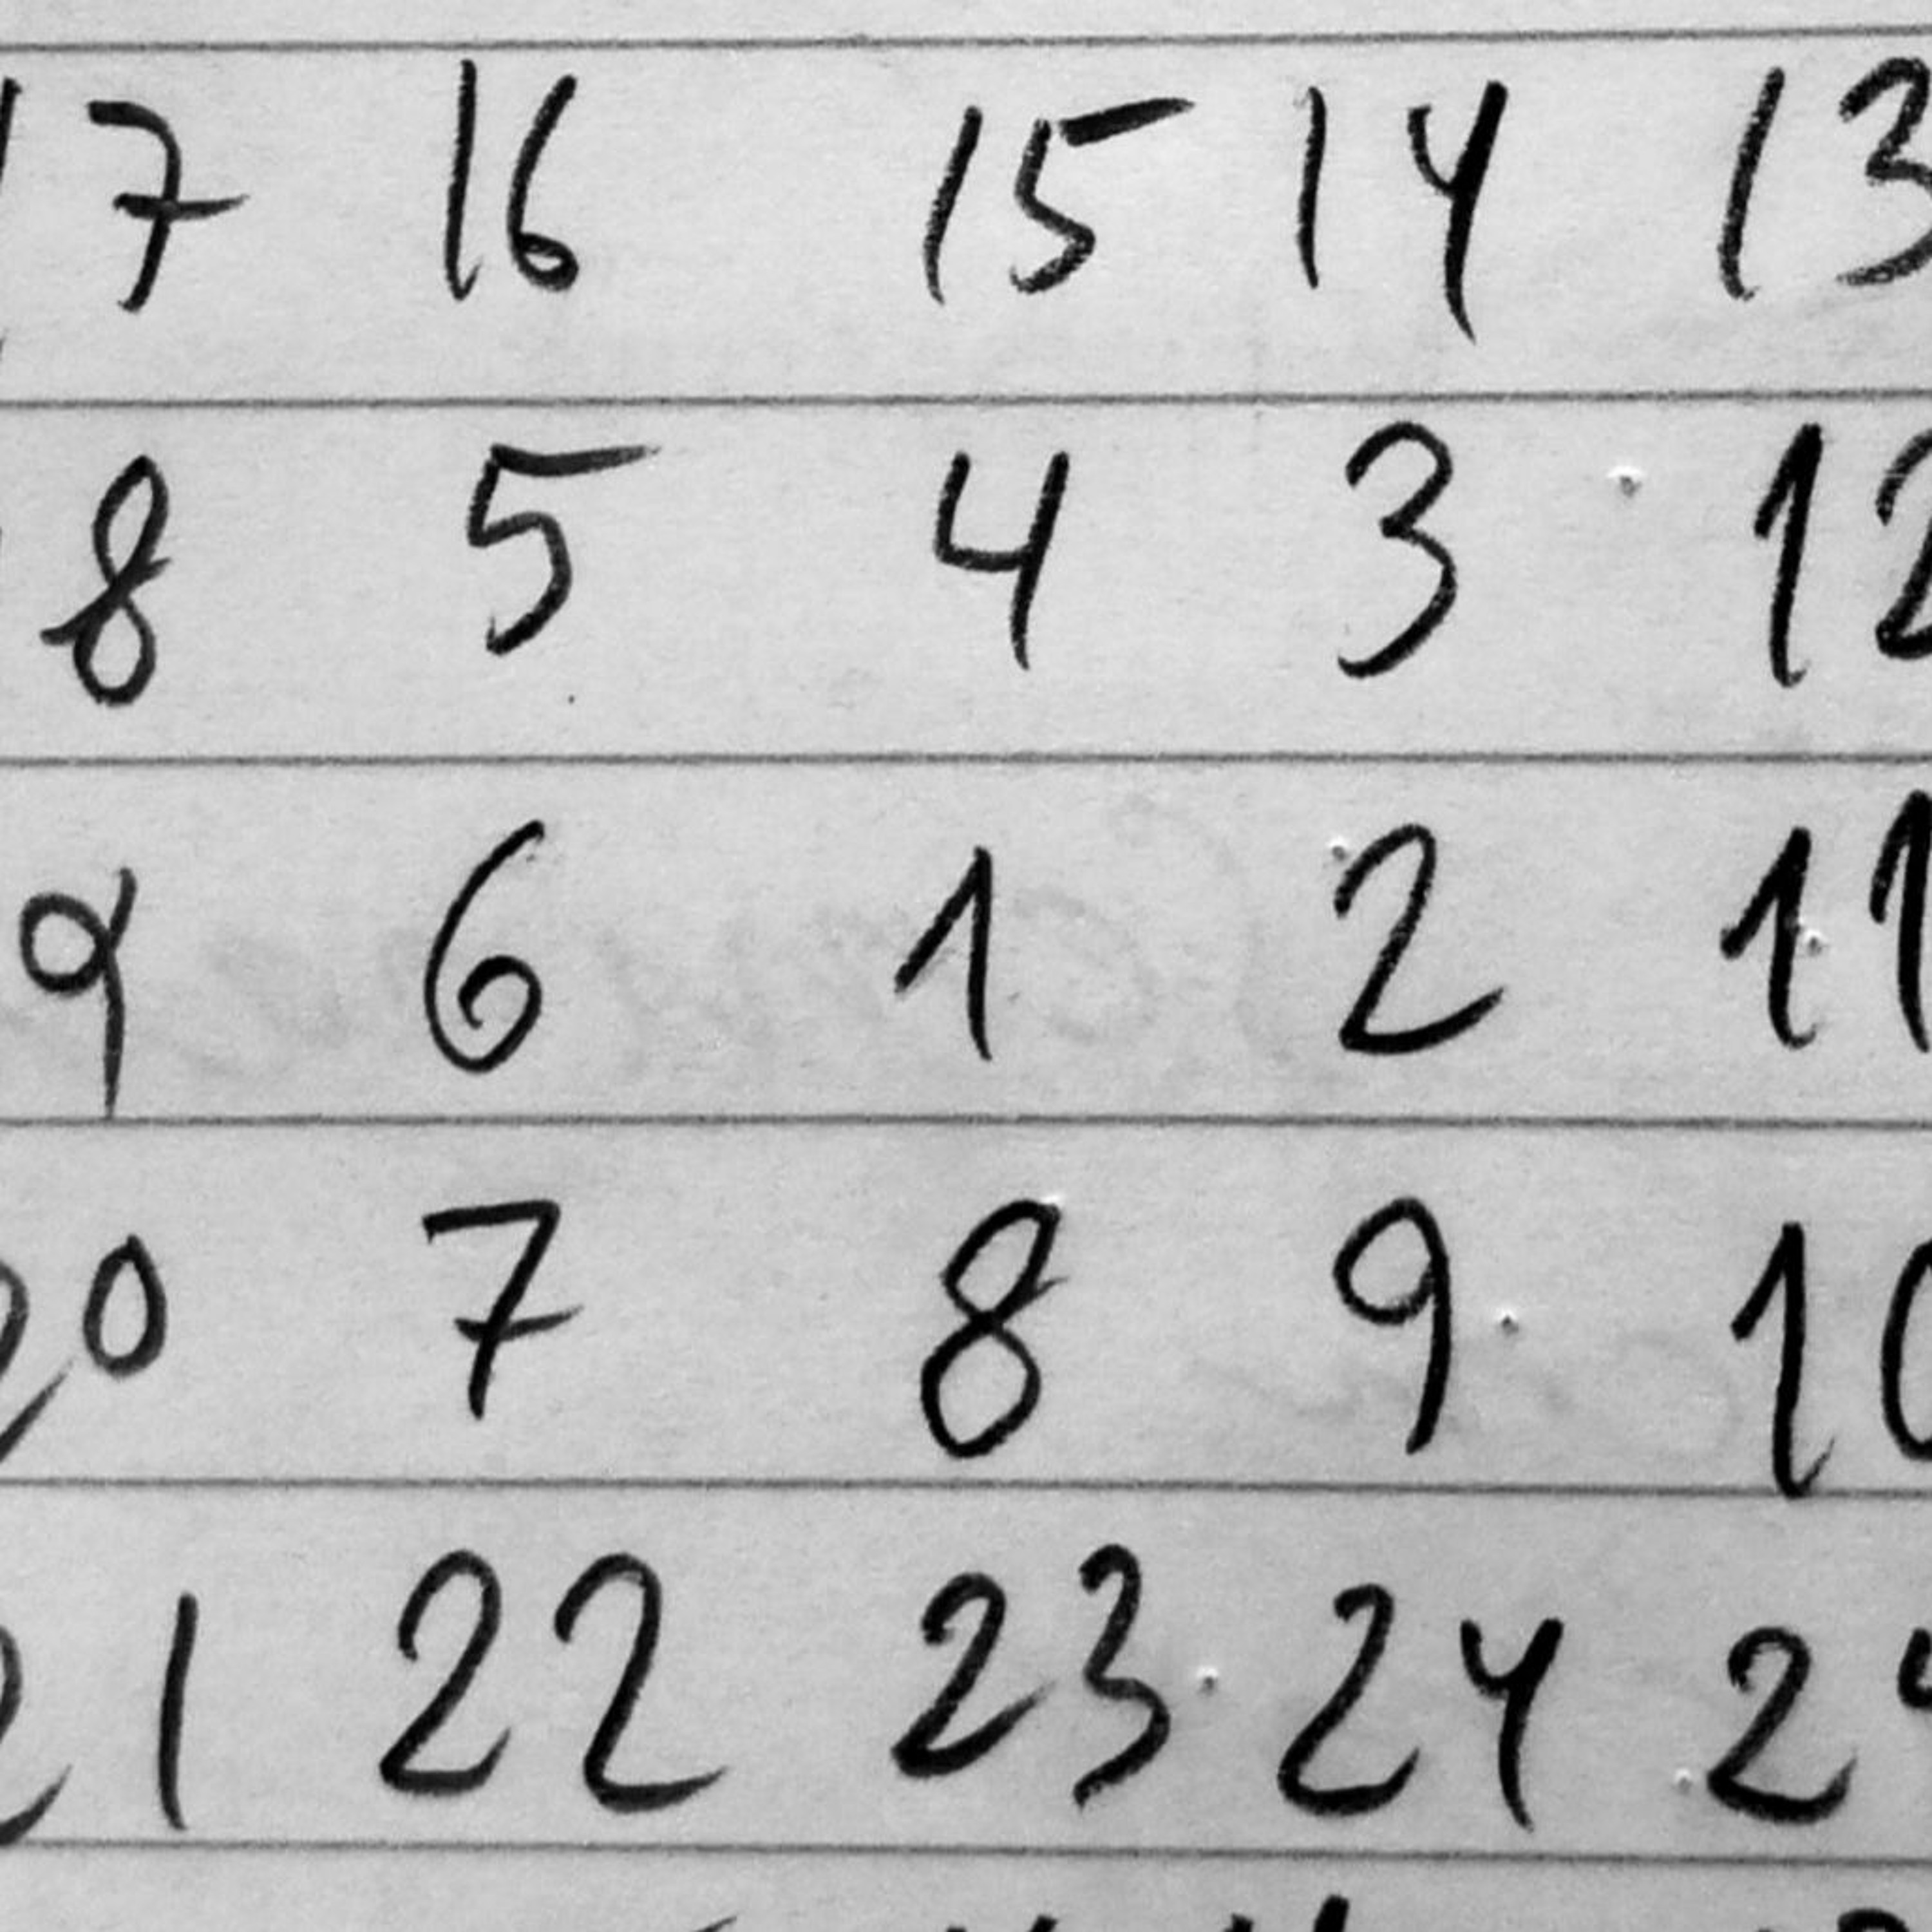 17 16 15 14 13
8 5 4 3 12
9 6 1 2 11
20 7 8 9 10
21 22 23 24 2